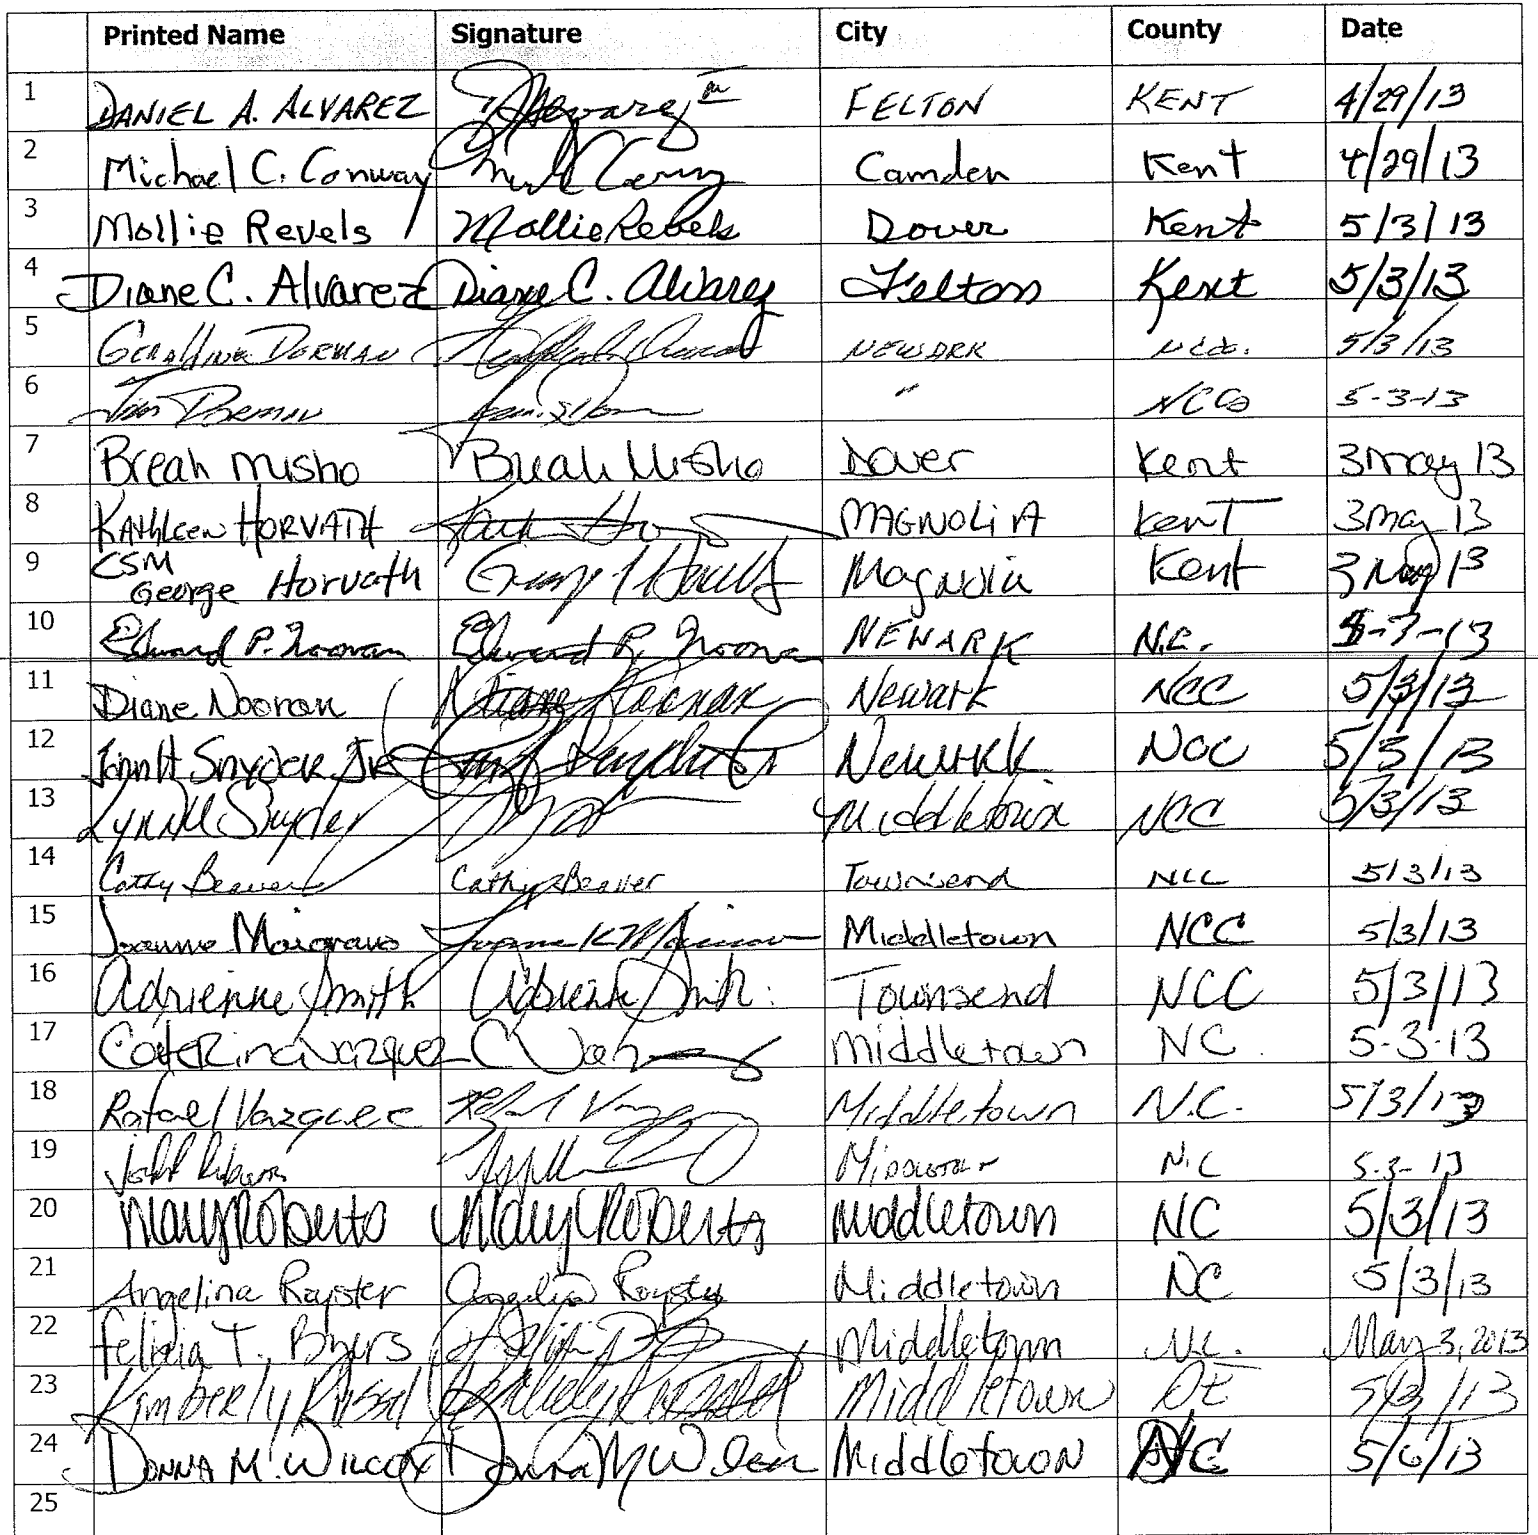 Printed Name Signature City County Date
1 DANIEL A. ALVAREZ FELTON KENT 4/29/13
2 Michael C. Conway Camden Kent 4/29/13
3 Mollie Revels Mollie Revels Dover Kent 5/3/13
4 Diane C. Alvarez Diane C. Alvarez Felton Kent 5/3/13
5 DORMAN NEWARK 5/3/13
6 " NCCo 5-3-13
7 Breah Misho Breah Misho Dover Kent 3 May 13
8 KAthleen HORVATH MAGNOLiA KenT 3 May 13
9 CSM
George Horvath Magnolia Kent 3 May 13
10 Edward P. Noonan Edward P. Noonan NEWARK N.C. 5-3-13
11 Diane Noonan Diane Noonan Newark NCC 5/3/13
12 John H Snyder Jr NCC 5/3/13
13 Snyder Middletown NCC 5/3/13
14 Cathy Beaver Cathy Beaver Townsend NCC 5/3/13
15 Joanne Middletown NCC 5/3/13
16 Adrienne Smith Adrienne Smith Townsend NCC 5/3/13
17 Caterina Vazquez Middletown NC 5-3-13
18 Rafael Vazquez Middletown N.C. 5/3/13
19 N.C 5-3-13
20 Mary Roberts Mary Roberts Middletown NC 5/3/13
21 Angelina Royster Middletown NC 5/3/13
22 Felicia T. Byers Middletown N.C. May 3, 2013
23 Kimberly Russel Middletown DE 5/3/13
24 DONNA M. WILCOX Middletown NC 5/6/13
25